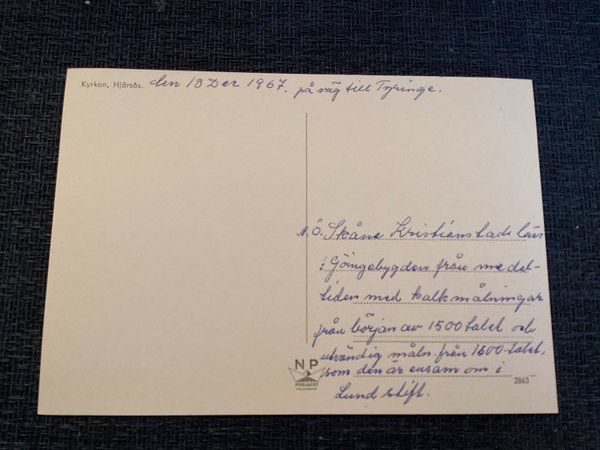 Kyrkan, Hjärsås. den 13 Dec 1967. på väg till Tyringe.
N.Ö. Skåne Kristianstads län
i Göingebygden från medel-
tiden med kalkmålningar
från början av 1500talet och
utvändig måln. från 1600-talet,
som den är ensam om i
Lund stift.
NP
FÖRLAGET
2863